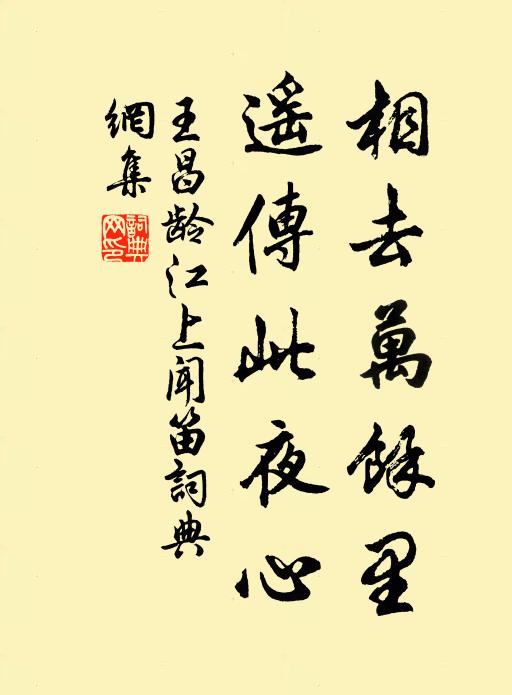 相去萬餘里
遥傳此夜心
王昌齡江上聞笛詞典
網集
詞典
网印